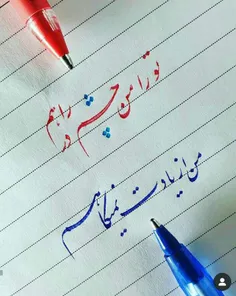 تو را من چشم در راهم
من از یادت نمیکاهم